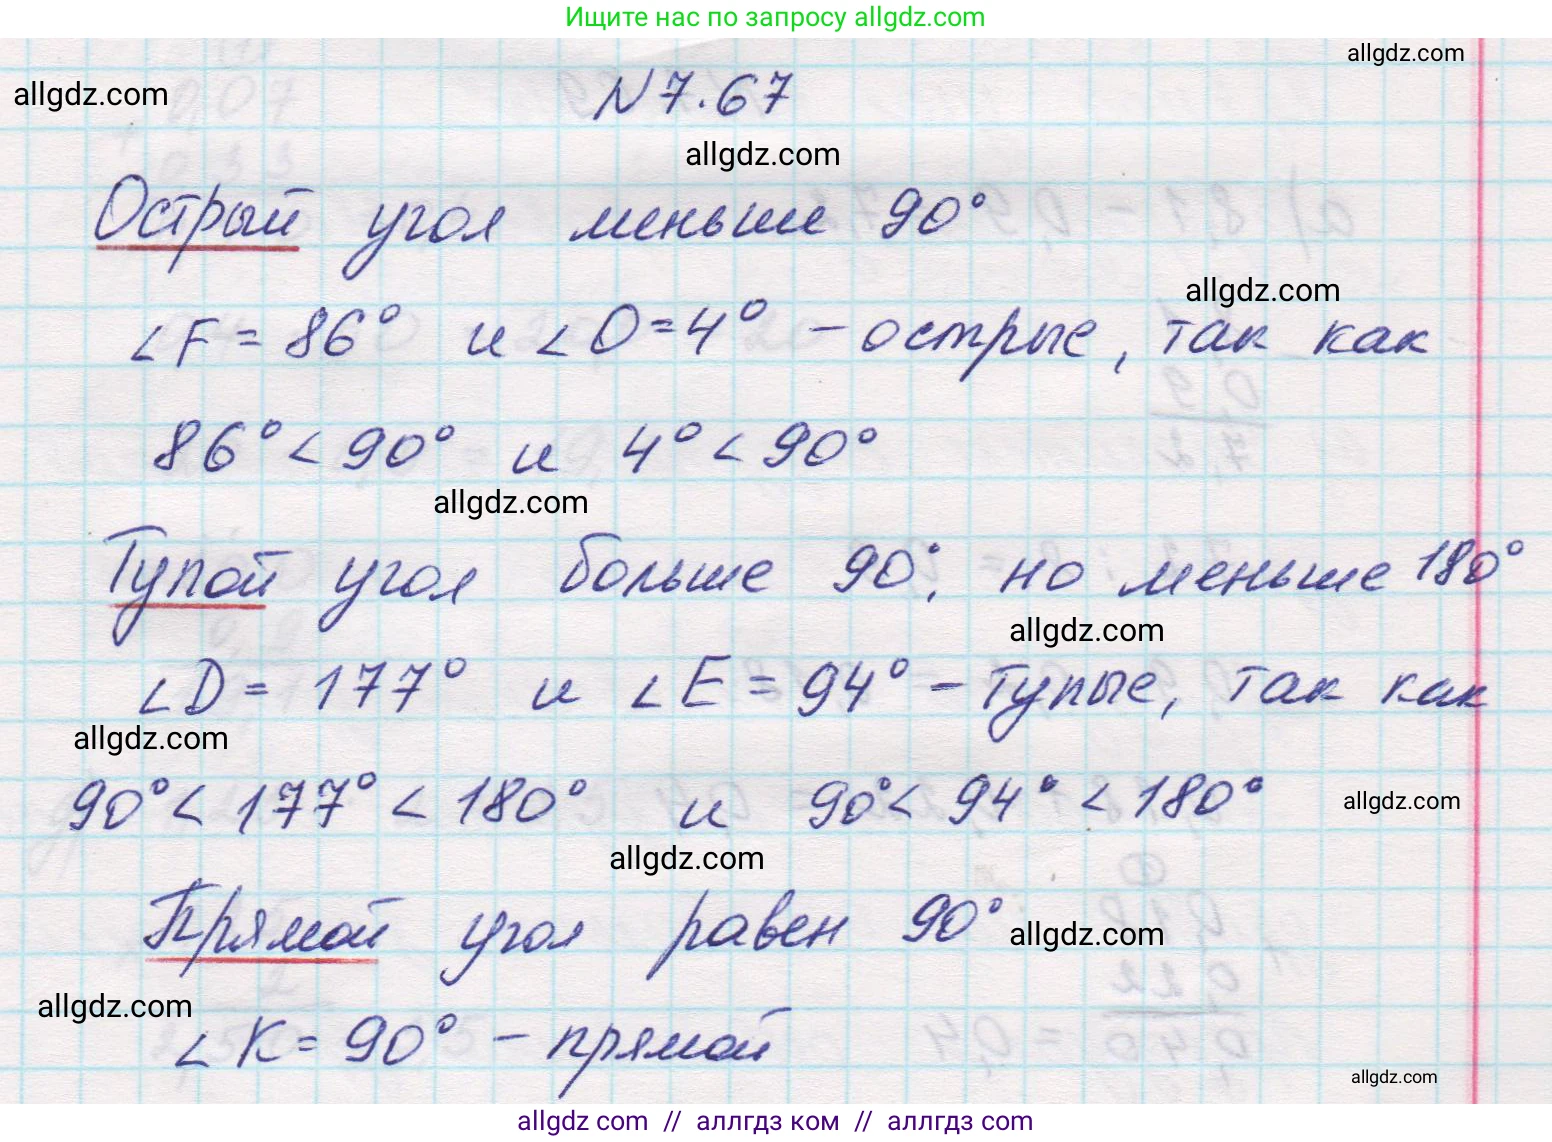 Ищите нас по запросу allgdz.com
allgdz.com
allgdz.com
N 7.67
allgdz.com
Острый угол меньше 90°
allgdz.com
∠F = 86° и ∠O = 4° – острые, так как
86° < 90° и 4° < 90°
allgdz.com
Тупой угол больше 90°, но меньше 180°
allgdz.com
∠D = 177° и ∠E = 94° – тупые, так как
allgdz.com
90° < 177° < 180° и 90° < 94° < 180°
allgdz.com
allgdz.com
Прямой угол равен 90°
allgdz.com
allgdz.com
∠K = 90° – прямой
allgdz.com
allgdz com // аллгдз ком // аллгдз com